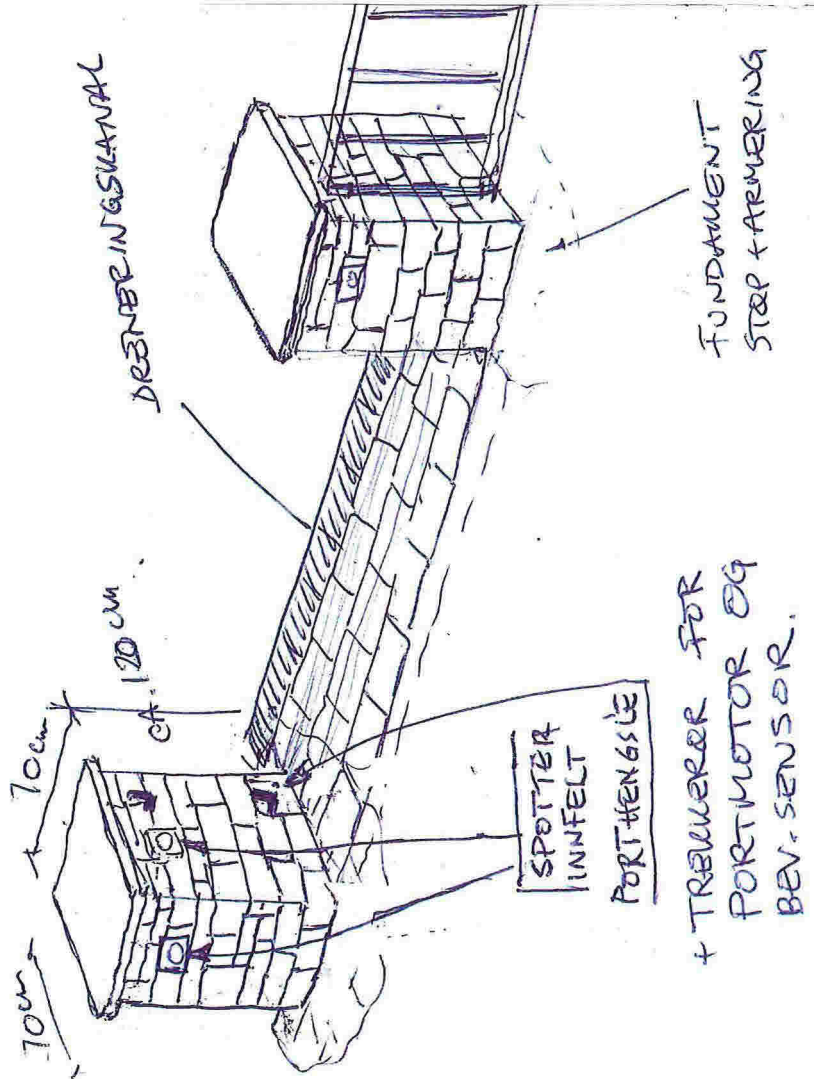 70 cm
70 cm
CA. 120 cm.
DRENERINGSKANAL
SPOTTER
INNFELT
PORTHENGSLE
+ TREKKERØR FOR
PORTMOTOR OG
BEV. SENSOR.
FUNDAMENT
STØP + ARMERING